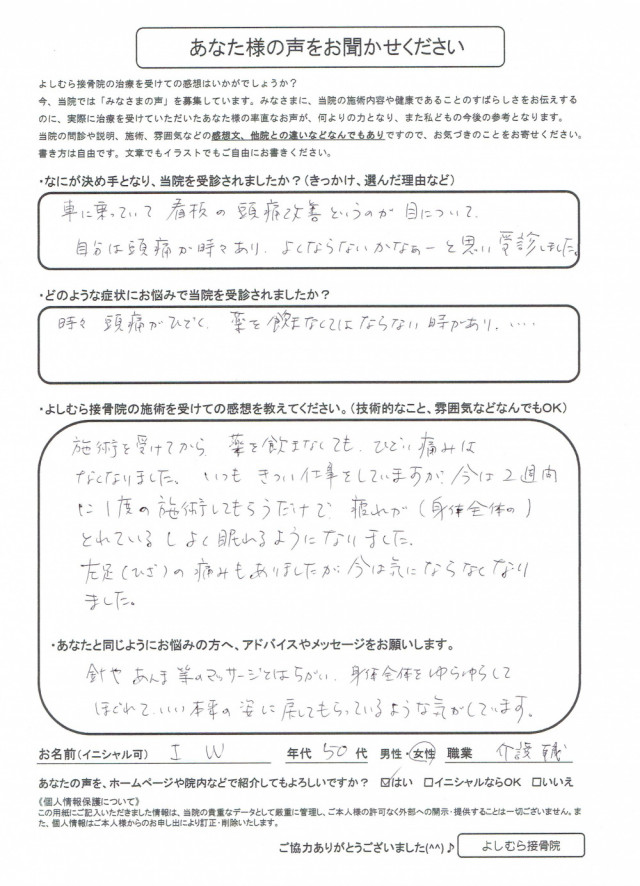 あなた様の声をお聞かせください
よしむら接骨院の治療を受けての感想はいかがでしょうか?
今、当院では「みなさまの声」を募集しています。みなさまに、当院の施術内容や健康であることのすばらしさをお伝えする
のに、実際に治療を受けていただいたあなた様の率直なお声が、何よりの力となり、また私どもの今後の参考となります。
当院の問診や説明、施術、雰囲気などの感想文、他院との違いなどなんでもありですので、お気づきのことをお寄せください。
書き方は自由です。文章でもイラストでもご自由にお書きください。
・なにが決め手となり、当院を受診されましたか?(きっかけ、選んだ理由など)
車に乗っていて 看板の頭痛改善というのが 目について、
自分は頭痛が時々あり、よくならないかなぁーと思い受診しました。
・どのような症状にお悩みで当院を受診されましたか?
時々 頭痛がひどく、薬を飲まなくてはならない時があり、‥‥
・よしむら接骨院の施術を受けての感想を教えてください。(技術的なこと、雰囲気などなんでもOK)
施術を受けてから、薬を飲まなくても、ひどい痛みは
なくなりました、いつも きつい仕事をしていますが、今は2週間
に1度の施術してもらうだけで、疲れが(身体全体の)
とれているしよく眠れるようになりました、
左足(ひざ)の痛みもありましたが、今は気にならなくなり
ました。
・あなたと同じようにお悩みの方へ、アドバイスやメッセージをお願いします。
針や あんま等のマッサージとはちがい、身体全体をゆらゆらして
ほぐれて、いい本来の姿に戻してもらっているような気がしています。
お名前(イニシャル可) I W 年代 50代 男性・女性 職業 介護職
あなたの声を、ホームページや院内などで紹介してもよろしいですか? ☑はい □イニシャルならOK □いいえ
《個人情報保護について》
この用紙にご記入いただきました情報は、当院の貴重なデータとして厳重に管理し、ご本人様の許可なく外部への開示・提供することは一切ございません。ま
た、個人情報はご本人様からのお申し出により訂正・削除いたします。
ご協力ありがとうございました(^^)♪ よしむら接骨院